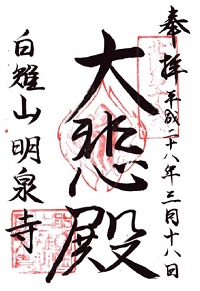 奉拝 平成二十八年三月十八日
大悲殿
白雉山明泉寺